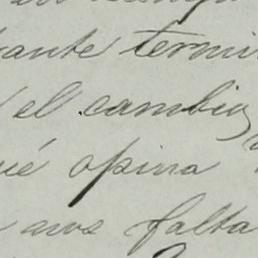 ante termi
el cambio,
ué opina
nos falta